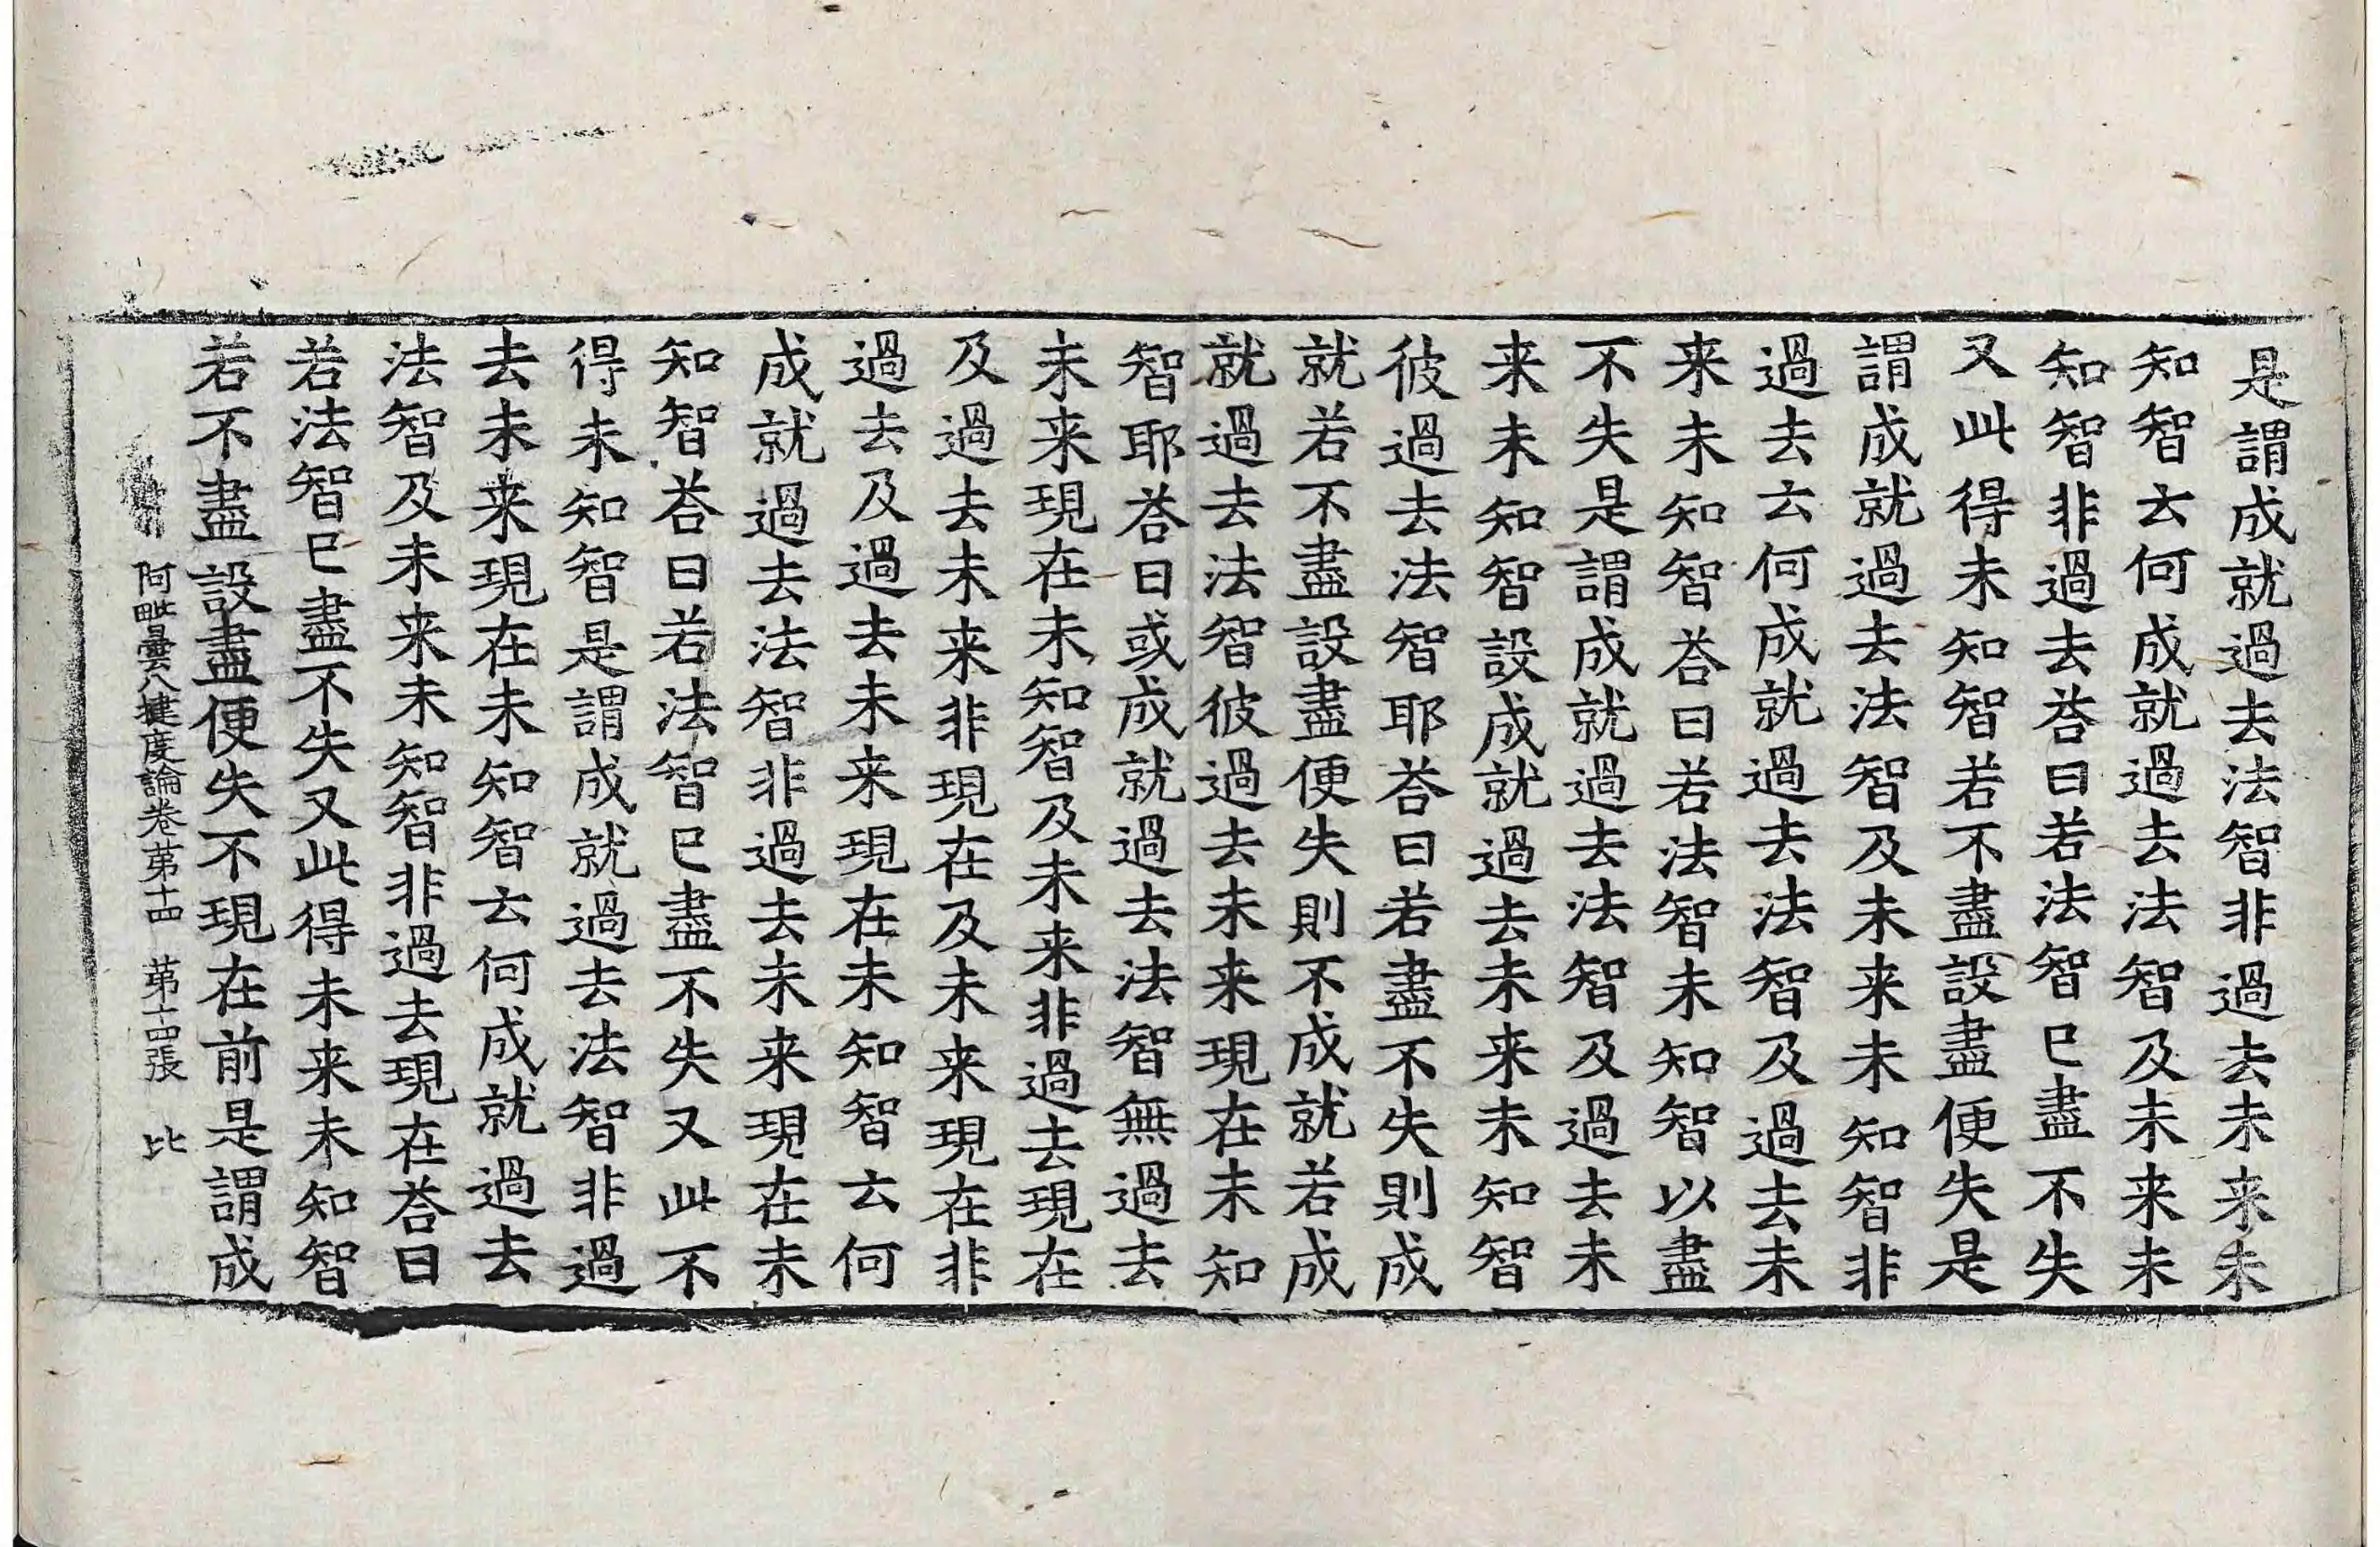 是謂成就過去法智非過去未来未
知智云何成就過去法智及未来未
知智非過去荅曰若法智已盡不失
又此得未知智若不盡設盡便失是
謂成就過去法智及未来未知智非
過去云何成就過去法智及過去未
来未知智荅曰若法智未知智以盡
不失是謂成就過去法智及過去未
来未知智設成就過去未来未知智
彼過去法智耶荅曰若盡不失則成
就若不盡設盡便失則不成就若成
就過去法智彼過去未来現在未知
智耶荅曰或成就過去法智無過去
未来現在未知智及未来非過去現在
及過去未来非現在及未来現在非
過去及過去未来現在未知智云何
成就過去法智非過去未来現在未
知智荅曰若法智已盡不失又此不
得未知智是謂成就過去法智非過
去未来現在未知智云何成就過去
法智及未来未知智非過去現在荅曰
若法智已盡不失又此得未来未知智
若不盡設盡便失不現在前是謂成
阿毗曇八揵度論卷苐十四　苐十四張　比